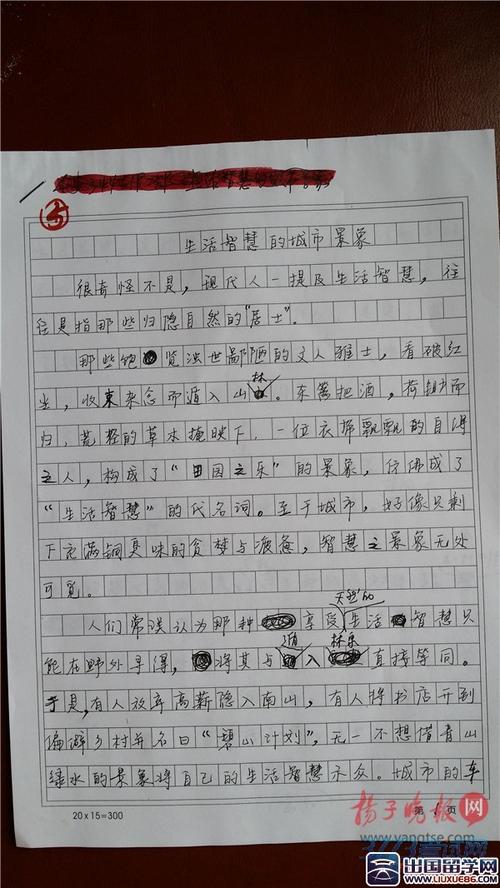 生活智慧的城市景象
很奇怪不是，现代人一提及生活智慧，往
往是指那些归隐自然的"居士"。
那些饱览浊世鄙陋的文人雅士，看破红
尘，收束杂念而遁入山林。东篱把酒，荷锄而
归，荒径的草木掩映下，一位衣带飘飘的自得
之人，构成了"田园之乐"的景象，仿佛成了
"生活智慧"的代名词。至于城市，好像只剩
下充满铜臭味的贪梦与疲惫，智慧之景象无处
可觅。
人们常误认为那种享受天然的生活智慧只
能在野外寻得，将其与遁入林乐直接等同。
于是，有人放弃高薪隐入南山，有人将书店开到
偏僻乡村并名曰"碧山计划"，无一不想借青山
绿水的景象将自己的生活智慧示众。城市的车
20×15=300
第 1 页
扬子晚报网
www.yangtse.com
出国留学网
www.liuxue86.com